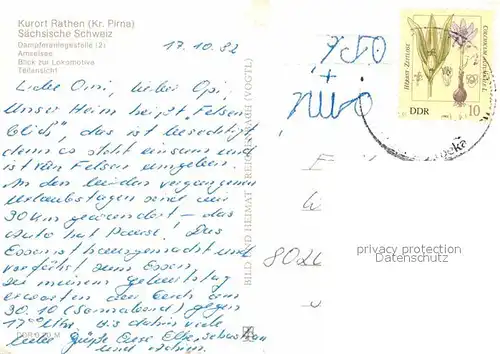 Kurort Rathen (Kr. Pirna)
Sächsische Schweiz
Dampferanlegestelle (2)
Amselsee
Blick zur Lokomotive
Teilansicht
17.10.82
Liebe Omi, lieber Opi,
Unser Heim heißt "Felsen
blick", das ist berechtigt
denn es steht einsam und
ist von Felsen umgeben.
An den beiden vergangenen
Urlaubstagen sind wir
30 km gewandert – das
Auto hat Pause! Das
Essen ist hausgemacht und
verführt zum Essen.
Zu meinem Geburtstag
erwarten den Euch am
30.10 (Sonnabend) gegen
17⁰⁰ Uhr. Bis dahin viele
liebe Grüße Eure Elke, Sebastian
und
BILD UND HEIMAT REICHENBACH (VOGTL)
DDR
10
802
privacy protection
Datenschutz